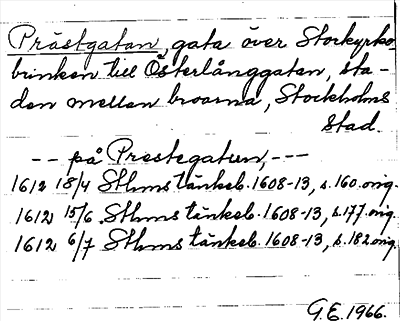 Prästgatan, gata över Storkyrko-
brinken till Österlånggatan, sta-
den mellan broarna, Stockholms
stad.
-- på Prestegatun, ---
1612 18/4 Sthms tänkeb. 1608-13, s. 160 orig.
1612 15/6 Sthms tänkeb. 1608-13, s. 177 orig.
1612 6/7 Sthms tänkeb. 1608-13, s. 182 orig.
G.E. 1966.